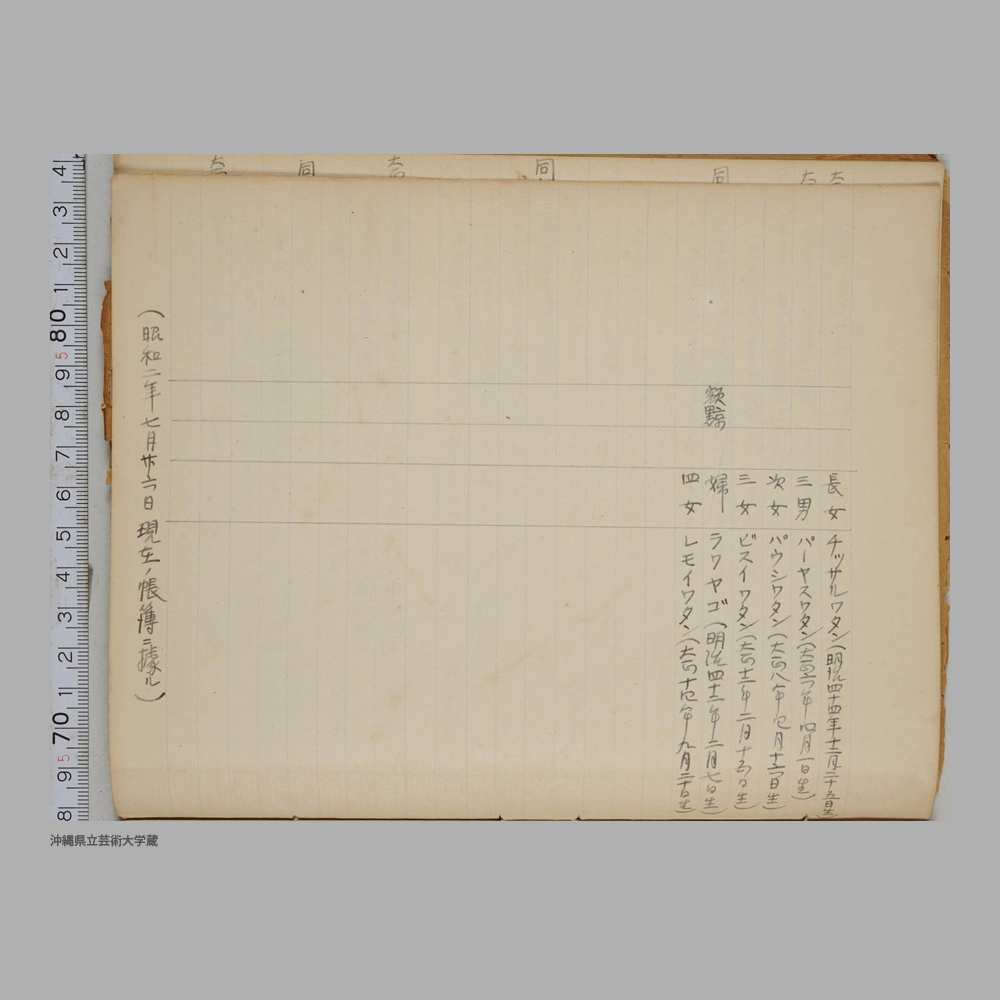 長女 チッサルワタン(明治四十四年十二月二十五日生)
三男 パーヤスワタン(大正六年四月一日生)
次女 パウシワタン(大正八年七月十六日生)
三女 ビスイワタン(大正十二年二月十五日生)
額黥 婦 ラワヤゴ(明治四十二年二月七日生)
四女 レモイワタン(大正十四年九月二十日生)
(昭和二年七月廿六日現在ノ帳簿ニ據ル)
同
同
同
4 3 2 1 80 5 9 8 7 6 5 4 3 2 1 70 5 9 8
沖縄県立芸術大学蔵